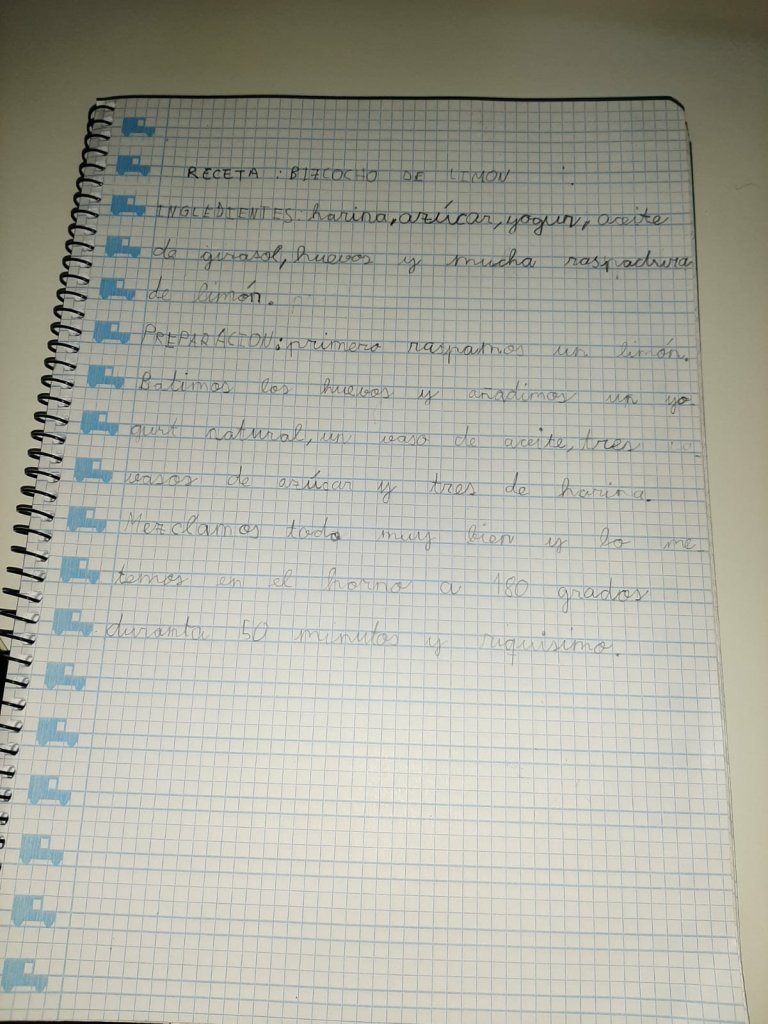 RECETA : BIZCOCHO DE LIMON
INGLEDIENTES: harina, azúcar, yogur, aceite
de girasol, huevos y mucha raspadura
de limón.
PREPARACION: primero raspamos un limón.
Batimos los huevos y añadimos un yo-
gurt natural, un vaso de aceite, tres
vasos de azúcar y tres de harina.
Mezclamos todo muy bien y lo me-
temos en el horno a 180 grados
duranta 50 minutos y riquisimo.